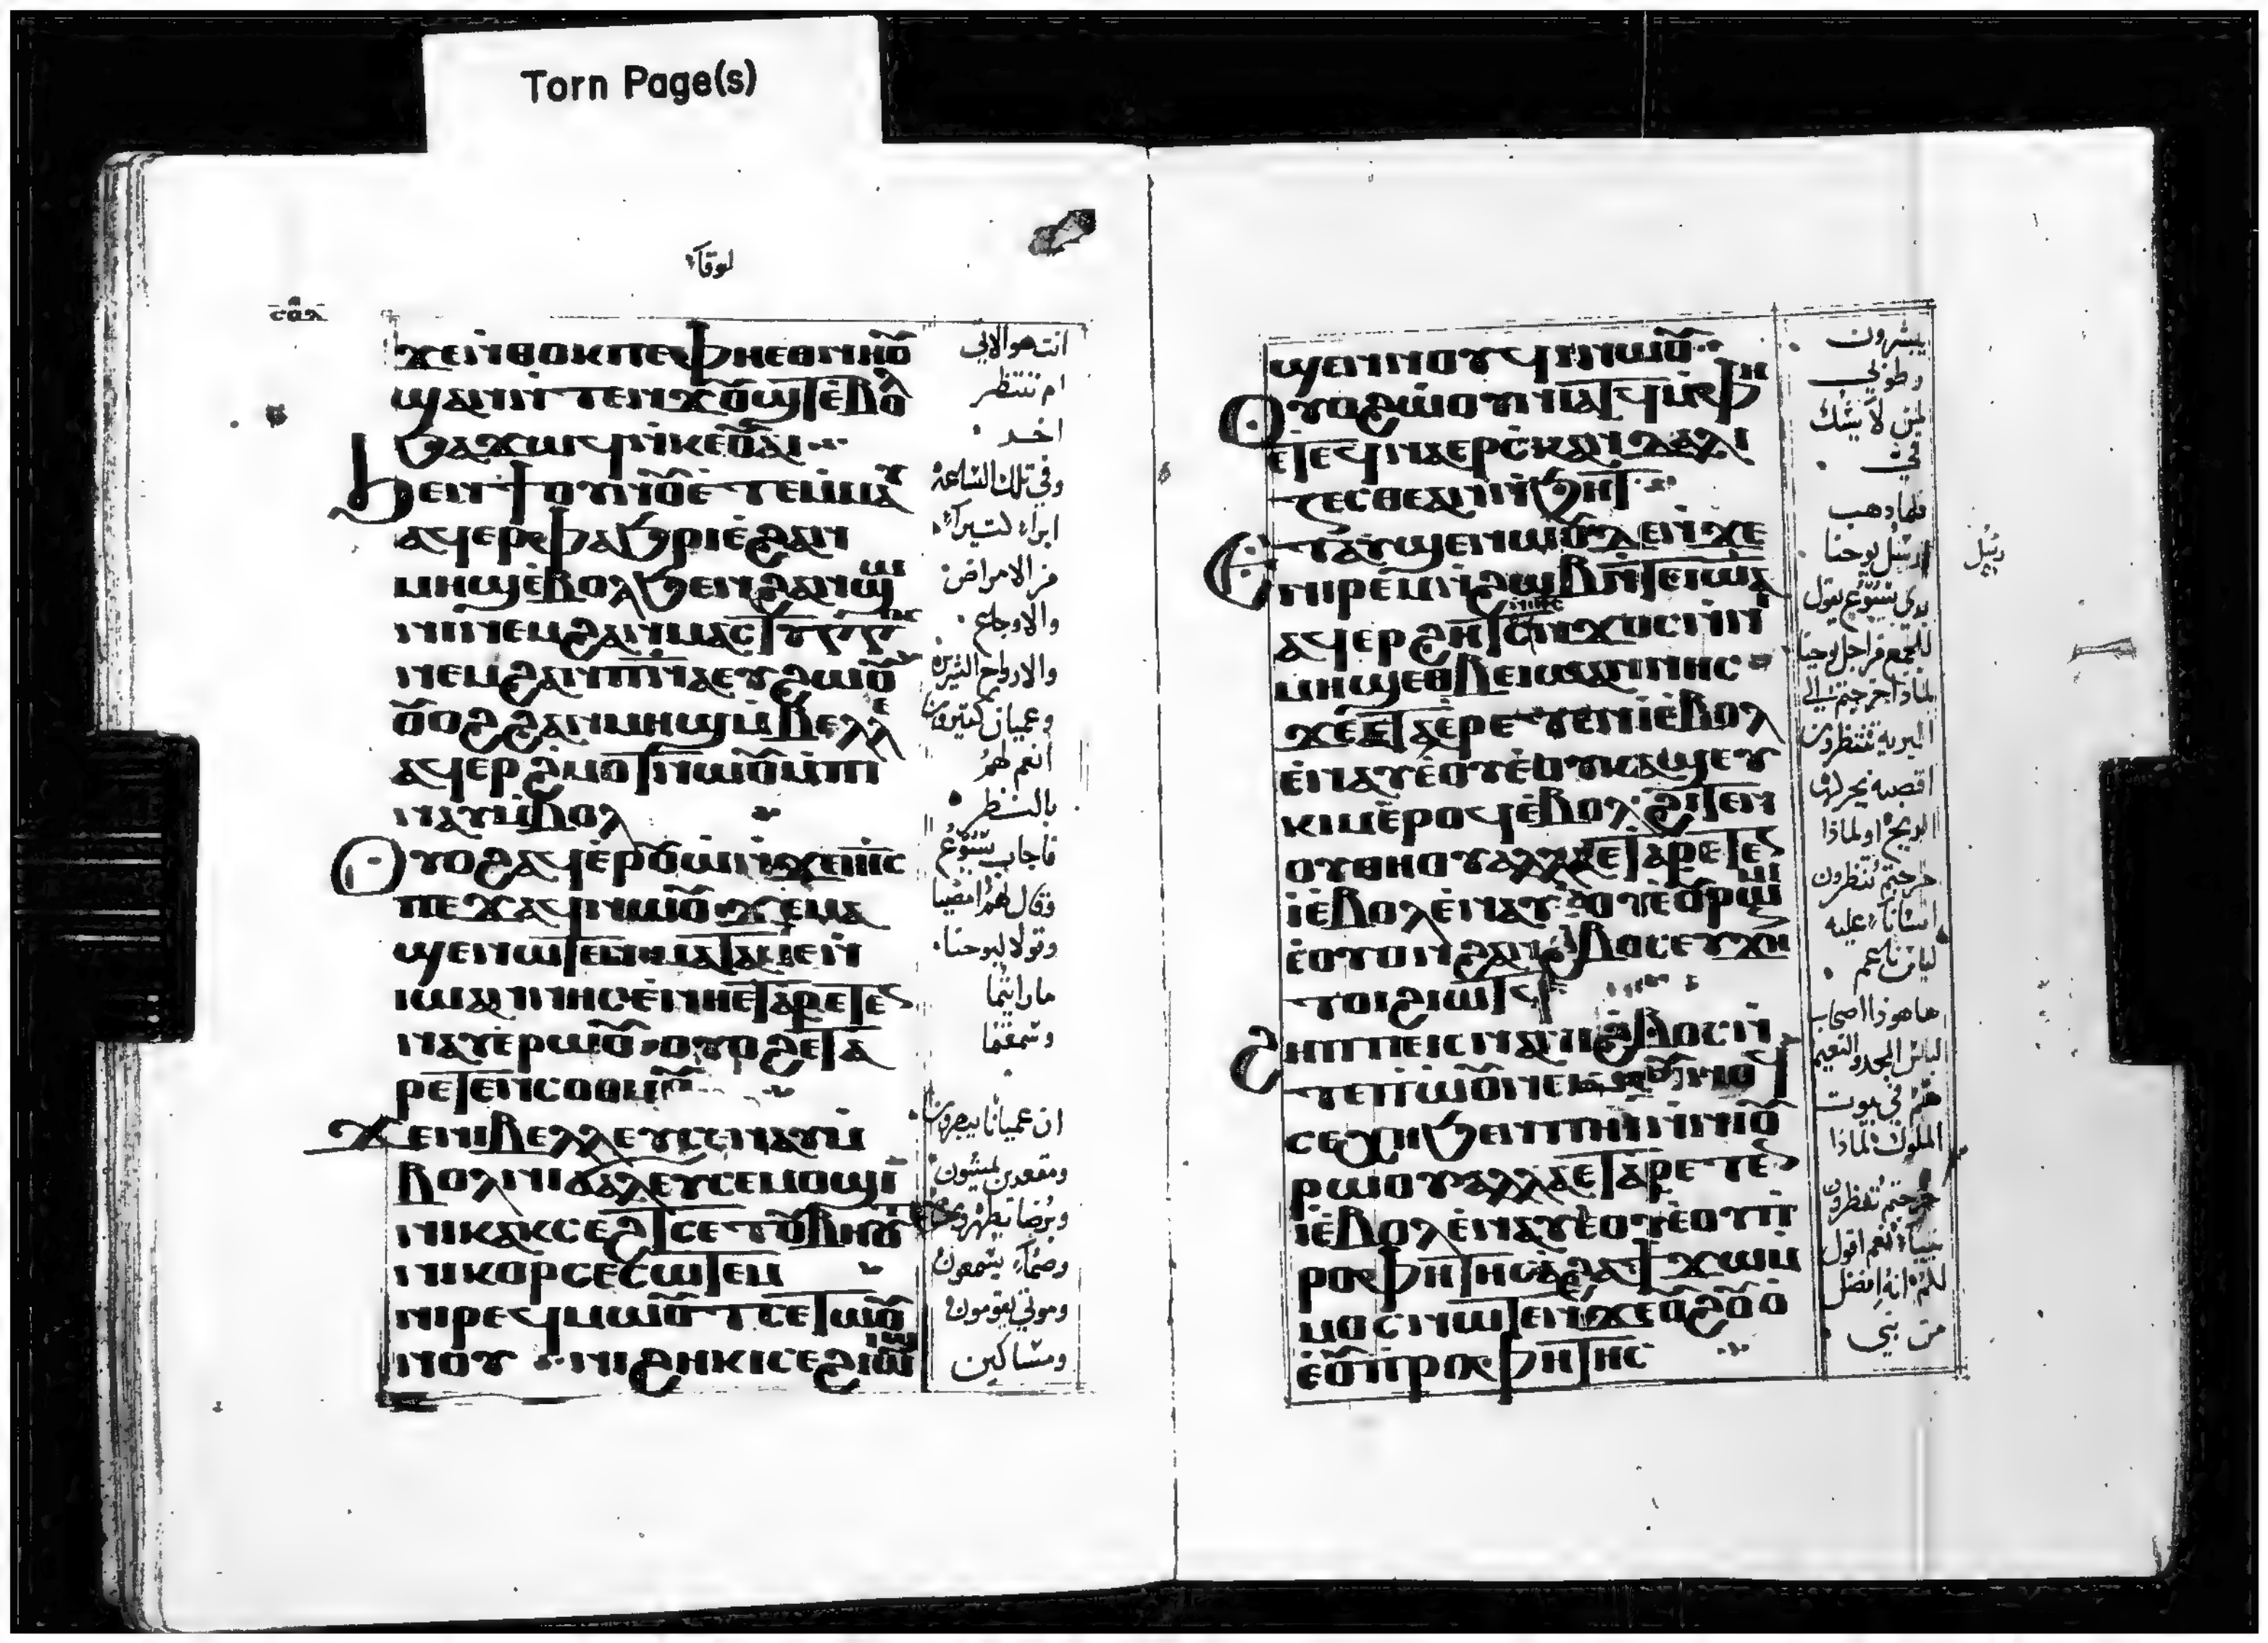 Torn Page(s)
لوقا
ⲥⲟⲁ
ϫⲉⲛⲑⲟⲕⲡⲉⲫⲏⲉⲑⲛⲏⲟⲩ
ϣⲁⲛⲛⲧⲉⲛϫⲟⲩϣⲧⲉⲃⲟⲗ
ϧⲁϫⲱϥⲛⲕⲉⲟⲩⲁⲓ
ϧⲉⲛϯⲟⲩⲛⲟⲩⲉⲧⲉⲙⲙⲁⲩ
ⲁϥⲉⲣⲫⲁϧⲣⲓⲉϩⲁⲛ
ⲙⲏϣⲉⲃⲟⲗϧⲉⲛϩⲁⲛϣⲱ
ⲛⲓⲛⲉⲙϩⲁⲛⲙⲁⲥⲧⲓⲅⲅⲟⲥ
ⲛⲉⲙϩⲁⲛⲡⲛⲁⲉⲩϩⲱⲟⲩ
ⲟⲩⲟϩϩⲁⲛⲙⲏϣⲙⲃⲉⲗⲗⲉ
ⲁϥⲉⲣϩⲙⲟⲧⲛⲱⲟⲩⲙⲡⲓ
ⲛⲁⲩⲙⲃⲟⲗ
ⲟⲩⲟϩⲁϥⲉⲣⲟⲩⲱⲛϫⲉⲓⲏⲥ
ⲡⲉϫⲁϥⲛⲱⲟⲩϫⲉⲙⲁ
ϣⲉⲛⲱⲧⲉⲛⲙⲁⲧⲁⲙⲉⲛ
ⲓⲱⲁⲛⲛⲏⲥⲉⲛⲏⲉⲧⲁⲣⲉⲧⲉⲛ
ⲛⲁⲩⲉⲣⲱⲟⲩⲟⲩⲟϩⲉⲧⲁ
ⲣⲉⲧⲉⲛⲥⲟⲑⲙⲟⲩ
ϫⲉⲛⲓⲃⲉⲗⲗⲉⲩⲥⲉⲛⲁⲩⲙ
ⲃⲟⲗⲛⲓϭⲁⲗⲉⲩⲥⲉⲙⲟϣⲓ
ⲛⲓⲕⲁⲕⲥⲉϩⲧⲥⲉⲧⲟⲩⲃⲏⲟⲩⲧ
ⲛⲓⲕⲟⲩⲣⲥⲉⲥⲱⲧⲉⲙ
ⲛⲓⲣⲉϥⲙⲱⲟⲩⲧⲥⲉⲧⲱⲟⲩ
ⲛⲟⲩ ⲛⲓϩⲏⲕⲓⲥⲉϩⲓϣⲱ
انت هو الاتي
ام ننتظر
اخر
وفي تلك الساعة
ابرا كثيرا
من الامراض
والاوجاع
والارواح الشريرة
وعميان كثيرون
انعم لهم
بالنظر
فاجاب يسوع
وقال لهم امضيا
وقولا ليوحنا
مارايتما
وسمعتما
ان عميانا يبصرون
ومقعدين يمشون
وبرصا يطهرون
وصما يسمعون
وموتى يقومون
ومساكين
ϣⲉⲛⲛⲟⲩϥⲛⲱⲟⲩ
ⲟⲩⲟϩⲱⲟⲩⲛⲓⲁⲧϥⲙⲫⲏ
ⲉⲧⲉϥⲛⲁⲉⲣⲥⲕⲁⲛⲇⲁⲗⲓ
ⲍⲉⲥⲑⲉⲁⲛⲛϧⲏⲧ
ⲉⲧⲁⲩϣⲉⲛⲱⲟⲩⲇⲉⲛϫⲉ
ⲛⲓⲣⲉⲙⲛϩⲱⲃⲛⲧⲉⲓⲱⲁ
ⲁϥⲉⲣϩⲏⲧⲥⲛϫⲟⲥⲛⲛⲓ
ⲙⲏϣⲉⲑⲃⲉⲓⲱⲁⲛⲛⲏⲥ
ϫⲉⲉⲧⲁⲣⲉⲧⲉⲛⲓⲉⲃⲟⲗ
ⲉⲛⲁⲩⲉⲟⲩⲉⲟⲩⲕⲁϣⲉⲩ
ⲕⲓⲙⲉⲣⲟϥⲉⲃⲟⲗϩⲓⲧⲉⲛ
ⲟⲩⲑⲏⲟⲩⲁⲗⲗⲁⲉⲧⲁⲣⲉⲧⲉⲛ
ⲓⲉⲃⲟⲗⲉⲛⲁⲩⲉⲟⲩⲉⲟⲩⲣⲱⲙⲓ
ⲉⲟⲩⲟⲛϩⲁⲛϩⲃⲟⲥⲉⲩϫⲏ
ⲧⲟⲓϩⲓⲱⲧϥ
ϩⲏⲡⲡⲉⲓⲥⲛⲁⲛⲓϩⲃⲟⲥⲛ
ⲧⲉⲡⲱⲟⲩⲛⲉⲙ
ⲥⲉⲭⲏϧⲉⲛⲛⲓⲏⲓⲛⲛⲓⲟⲩ
ⲣⲱⲟⲩⲁⲗⲗⲁⲉⲧⲁⲣⲉⲧⲉⲛ
ⲓⲉⲃⲟⲗⲉⲛⲁⲩⲉⲟⲩⲉⲟⲩⲡ
ⲣⲟⲫⲏⲧⲏⲥⲁϩⲁϯϫⲱⲙ
ⲙⲟⲥⲛⲱⲧⲉⲛϫⲉⲟⲩϩⲟⲩⲟ
ⲉⲟⲩⲡⲣⲟⲫⲏⲧⲏⲥ
يبشرون
وطوبى
لمن لا يشك
في
فلما ذهب
رسل يوحنا
بدى يسوع يقول
للجمع من اجل يوحنا
لماذا خرجتم الى
البرية تنظرون
اقصبة يحركها
الريح او لماذا
خرجتم تنظرون
انسانا عليه
لباس ناعم
ها هوذا اصحاب
لباس المجد والنعيم
هم في بيوت
الملوك لماذا
خرجتم تنظرون
نبيا نعم اقول
لكم انه افضل
من نبي